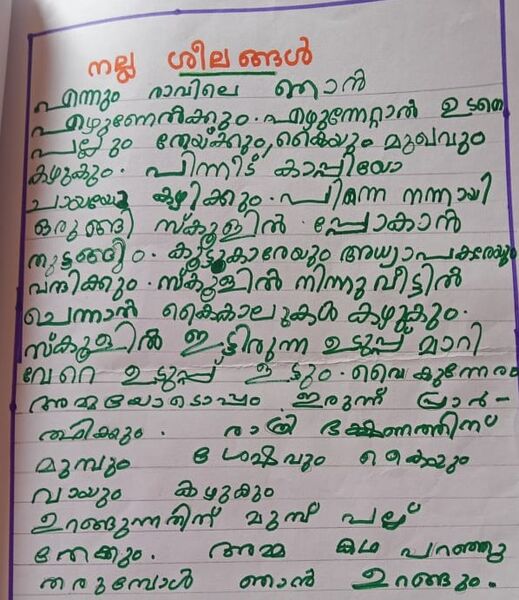 നല്ല ശീലങ്ങൾ
എന്നും രാവിലെ ഞാൻ
എഴുണേൽക്കും. എഴുന്നേറ്റാൽ ഉടനെ
പല്ലും തേയ്ക്കും, കൈയും മുഖവും
കഴുകും. പിന്നീട് കാപ്പിയോ
ചായയോ കുടിക്കും. പിന്നെ നന്നായി
ഒരുങ്ങി സ്കൂളിൽ പോകാൻ
തുടങ്ങും. കൂട്ടുകാരേയും അധ്യാപകരേയും
വന്ദിക്കും. സ്കൂളിൽ നിന്നു വീട്ടിൽ
ചെന്നാൽ കൈകാലുകൾ കഴുകും.
സ്കൂളിൽ ഇട്ടിരുന്ന ഉടുപ്പ് മാറി
വേറെ ഉടുപ്പ് ഇടും. വൈകുന്നേരം
അമ്മയോടൊപ്പം ഇരുന്ന് പ്രാർ-
ത്ഥിക്കും. രാത്രി ഭക്ഷണത്തിന്
മുമ്പും ശേഷവും കൈയും
വായും കഴുകും
ഉറങ്ങുന്നതിന് മുമ്പ് പല്ല്
തേക്കും. അമ്മ കഥ പറഞ്ഞു
തരുമ്പോൾ ഞാൻ ഉറങ്ങും.